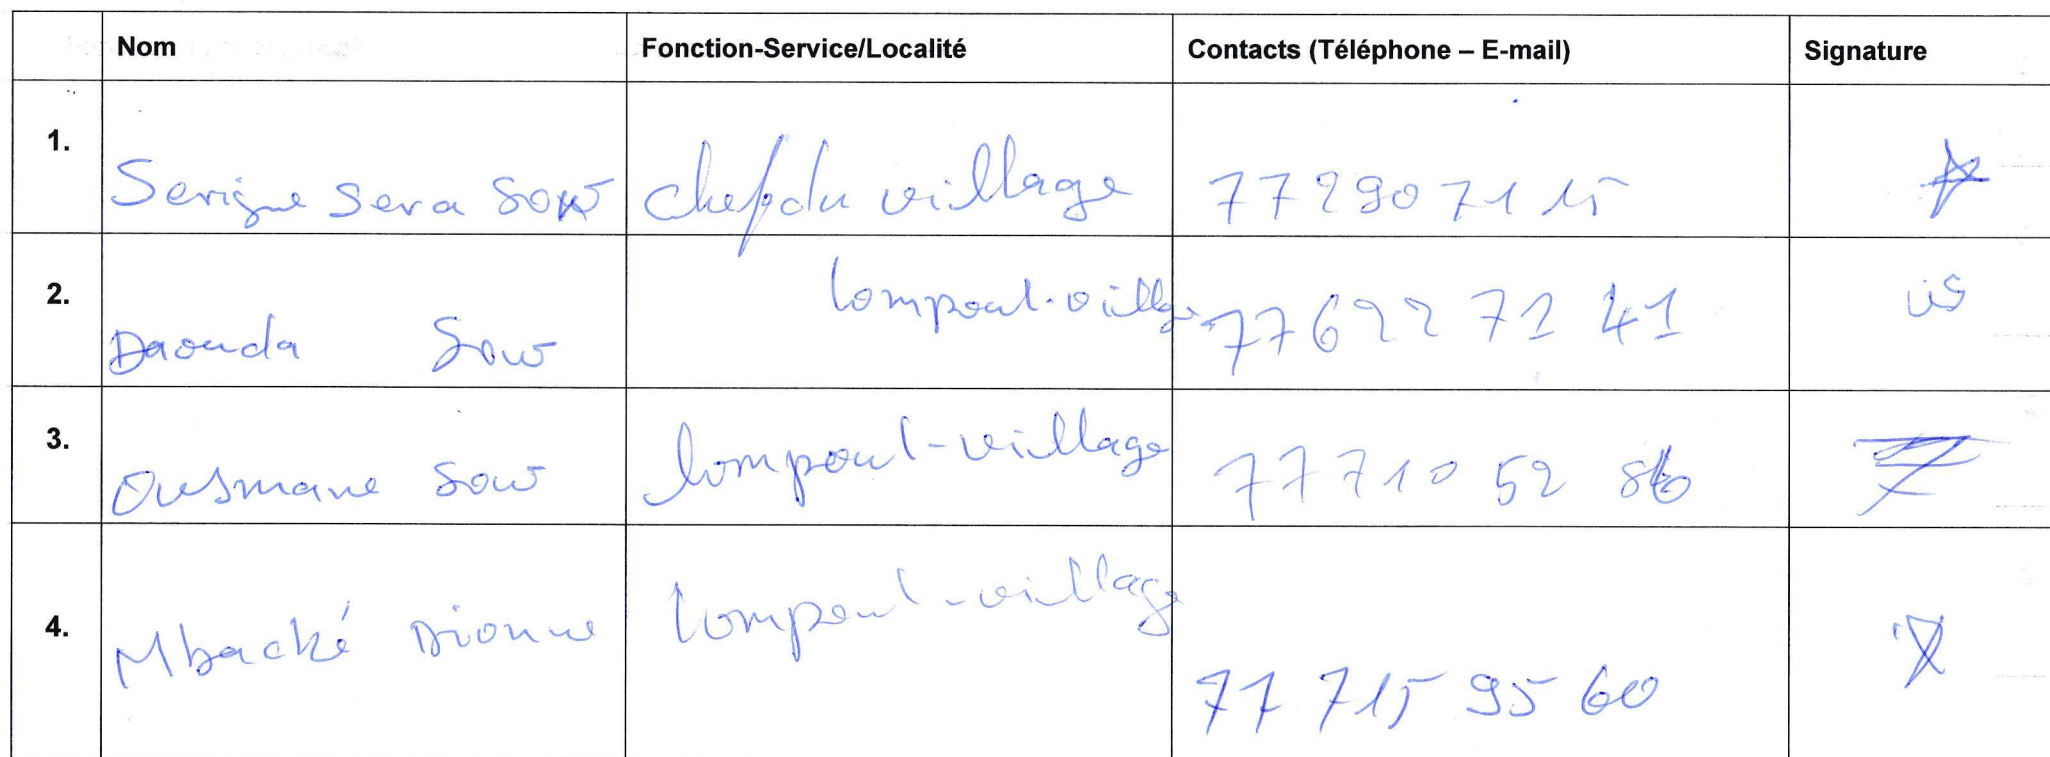 Nom Fonction-Service/Localité Contacts (Téléphone – E-mail) Signature
1. Serigne Sera Sow chef du villlage 77 290 71 15
2. Daouda Sow lompoul-village 77 622 71 41
3. Ousmane Sow lompoul-village 77 710 52
4. Mbacké Dionne lompoul-village 77 715 95 60